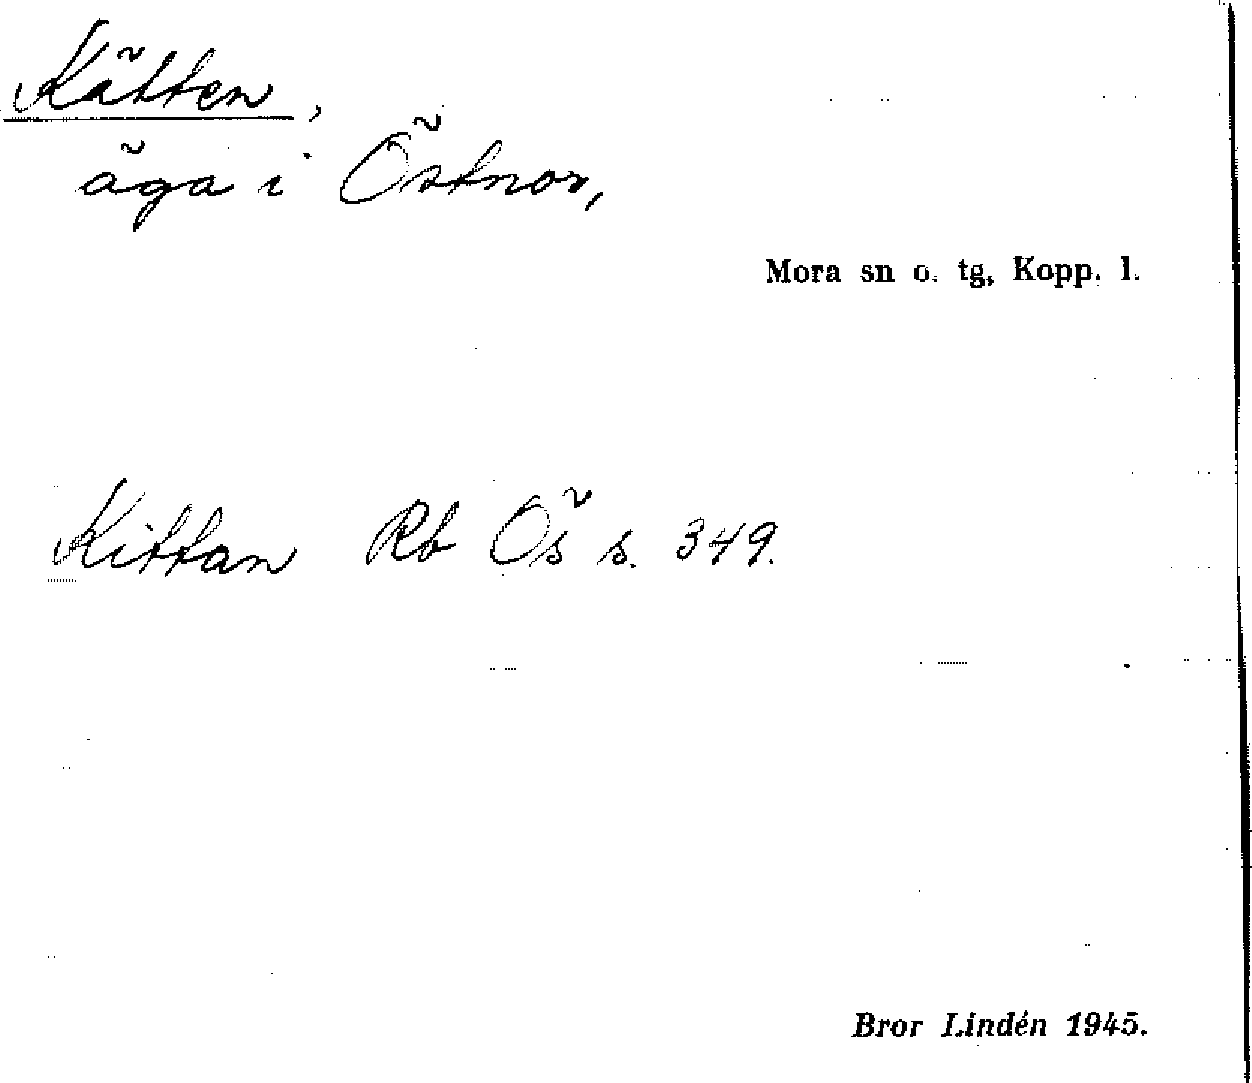 Kätten,
äga i Östnor,
Mora sn o. tg, Kopp. l.
Kittan Rb Ös s. 349.
Bror Lindén 1945.